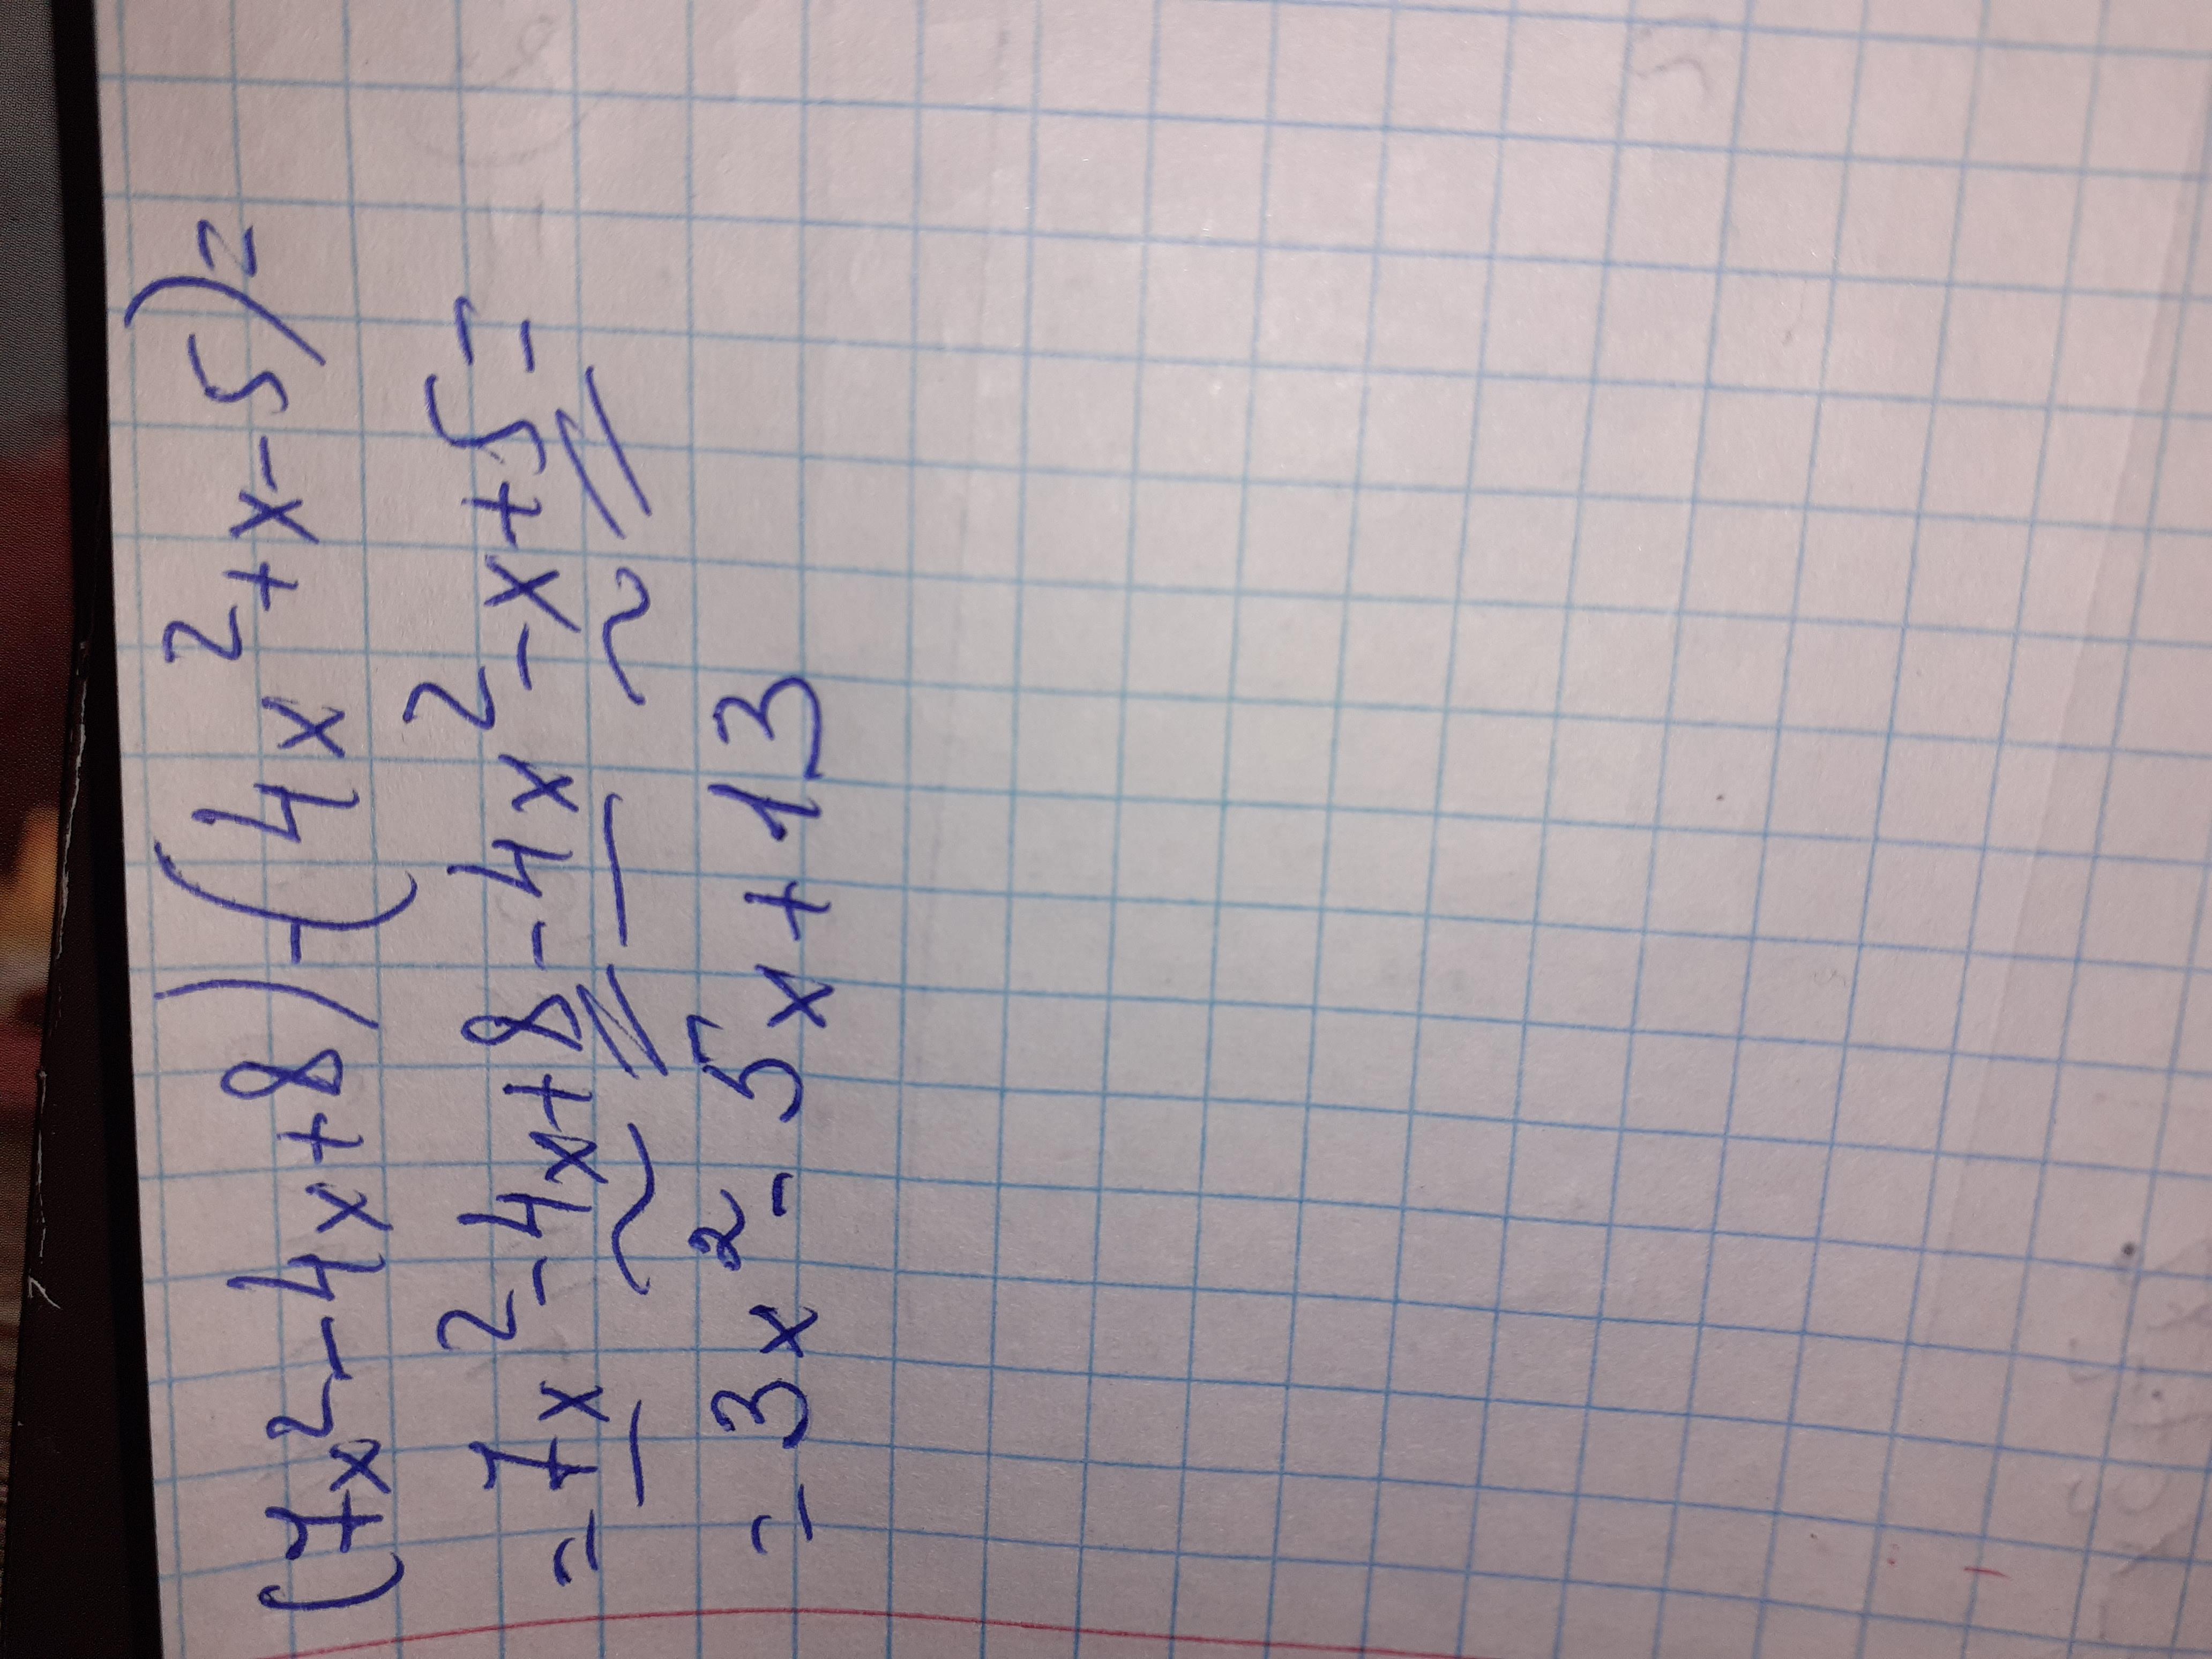 (7x²-4x+8)-(4x²+x-5)=
=7x²-4x+8-4x²-x+5=
=3x²-5x+13